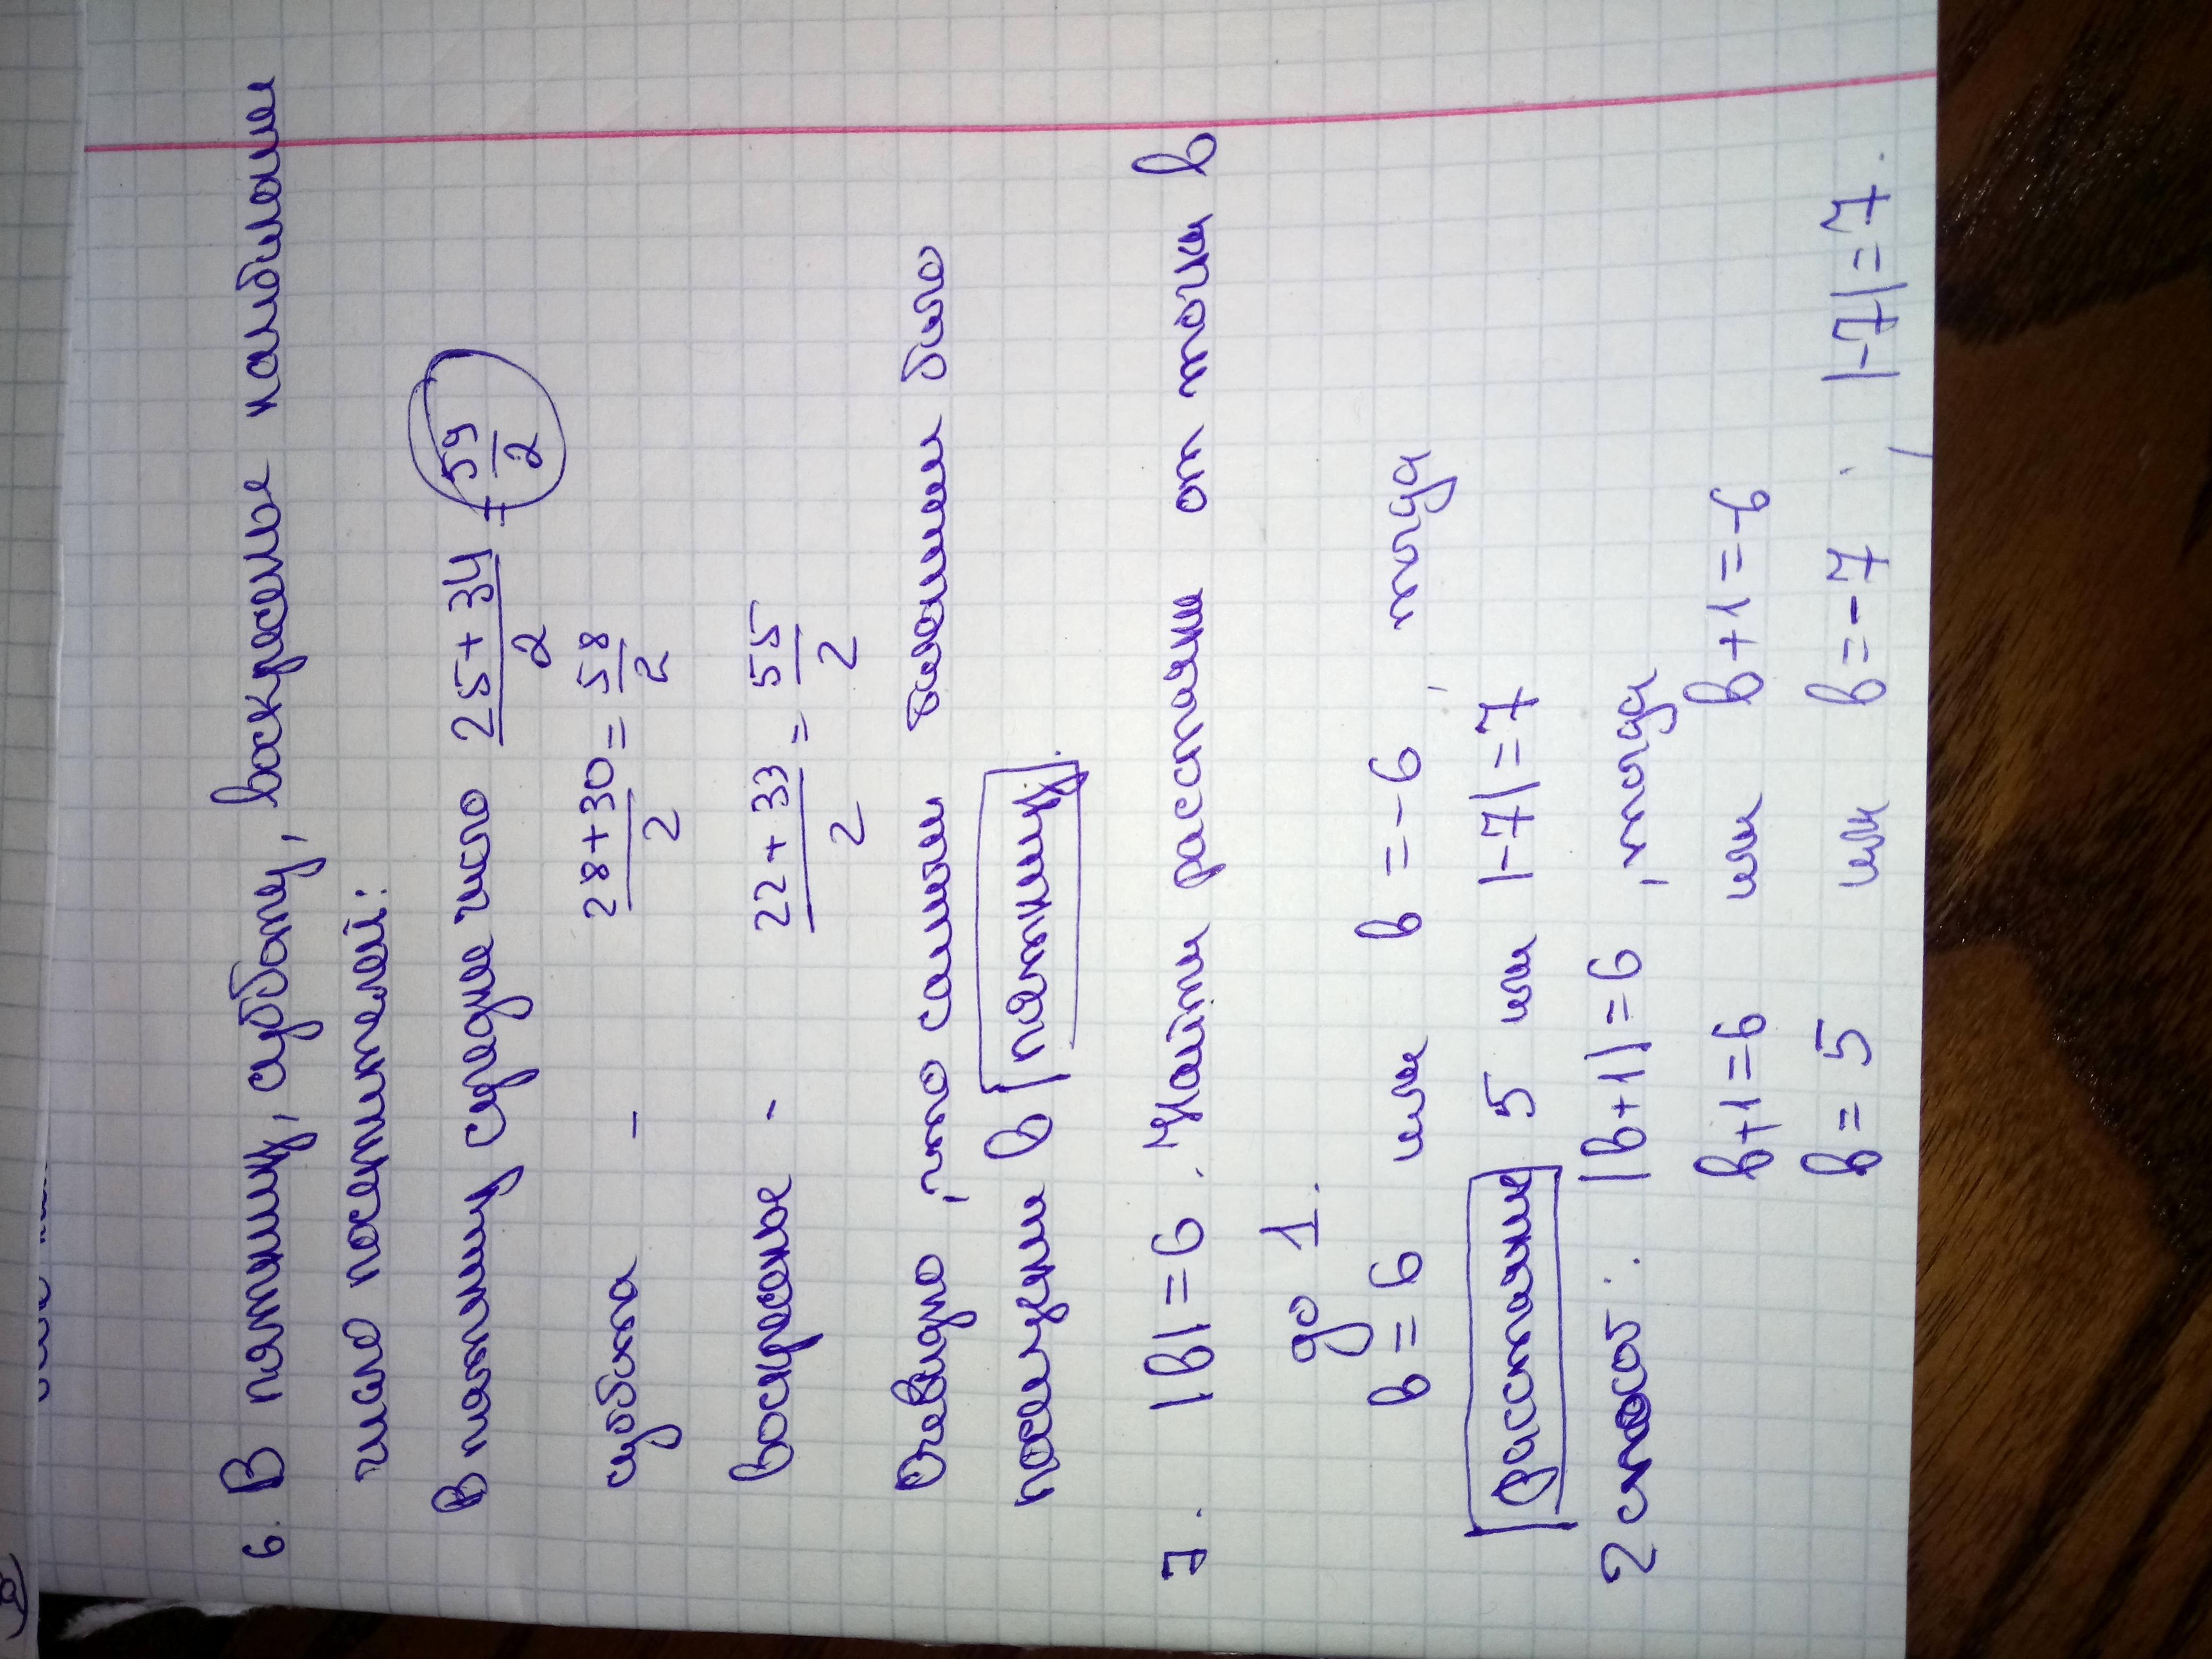 6. В пятницу, субботу, воскресенье наибольшим
число посетителей:
В пятницу среднее число 25+34/2 = 59/2
суббота - 28+30/2 = 58/2
Воскресенье - 22+33/2 = 55/2
Очевидно, что самым большим было
посещение в пятницу.
7. |в|=6. Найти расстояние от точки в
до 1.
в=6 или в=-6, тогда
расстояние 5 или |-7|=7
2 способ: |в+1|=6, тогда
в+1=6 или в+1=-6
в=5 или в=-7; |-7|=7.